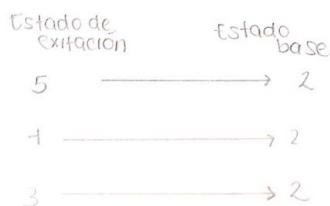 Estado de
exitación
Estado
base
5 → 2
4 → 2
3 → 2